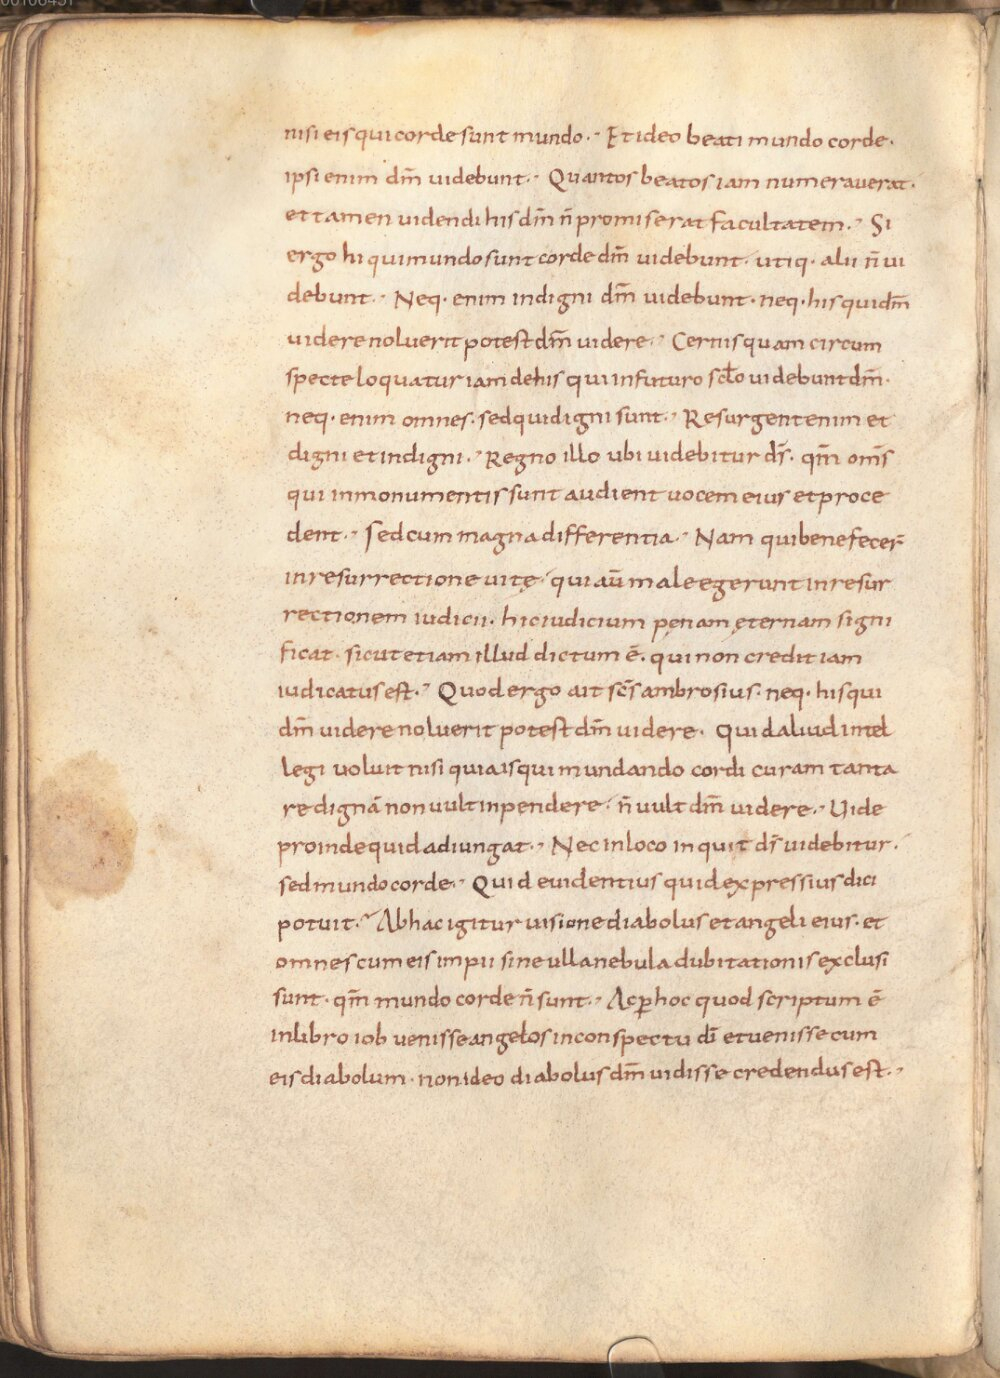 nisi eis qui corde sunt mundo. Et ideo beati mundo corde.
ipsi enim dm̄ uidebunt. Quantos beatos iam numeraverat.
et tamen uidendi his dm̄ n̄ promiserat facultatem. Si
ergo hi qui mundo sunt corde dm̄ uidebunt. utiq. alii n̄ ui
debunt. Neq. enim indigni dm̄ uidebunt. neq. his qui dm̄
uidere noluerit potest dm̄ uidere. Cernis quam circum
specte loquatur iam de his qui in futuro sc̄lo uidebunt dm̄.
neq. enim omnes. sed qui digni sunt. Resurgent enim et
digni et indigni. Regno illo ubi uidebitur ds̄. qm̄ oms̄
qui in monumentis sunt audient uocem eius et proce
dent. Sed cum magna differentia. Nam qui bene fecer̄
in resurrectione uitę. qui aū male egerunt in resur
rectionem iudicii. hic iudicium pęnam ęternam signi
ficat. sicut etiam illud dictum ē. qui non credit iam
iudicatus est. Quod ergo ait sc̄s ambrosius. neq. his qui
dm̄ uidere noluerit potest dm̄ uidere. Quid aliud intel
legi uoluit nisi quia is qui mundando cordi curam tanta
re dignā non uult inpendere. n̄ uult dm̄ uidere. Uide
proinde quid adiungat. Nec in loco inquit ds̄ uidebitur.
sed mundo corde. Quid euidentius quid expressius dici
potuit. Ab hac igitur uisione diabolus et angeli eius. et
omnes cum eis impii sine ulla nebula dubitationis exclusi
sunt. qm̄ mundo corde n̄ sunt. Ac ꝑ hoc quod scriptum ē
in libro iob uenisse angelos in conspectu dī et uenisse cum
eis diabolum. non ideo diabolus dm̄ uidisse credendus est.